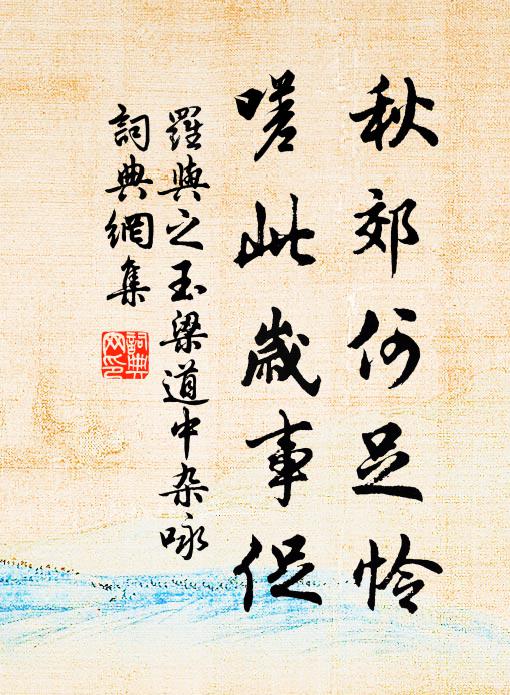 秋郊何足怜
嗟此歲事促
羅與之玉梁道中杂咏
詞典網集
詞典
网印